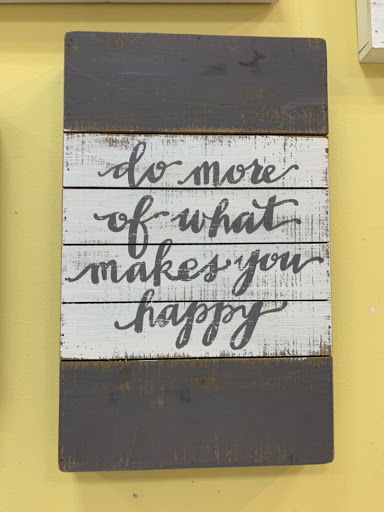 do more
of what
makes you
happy